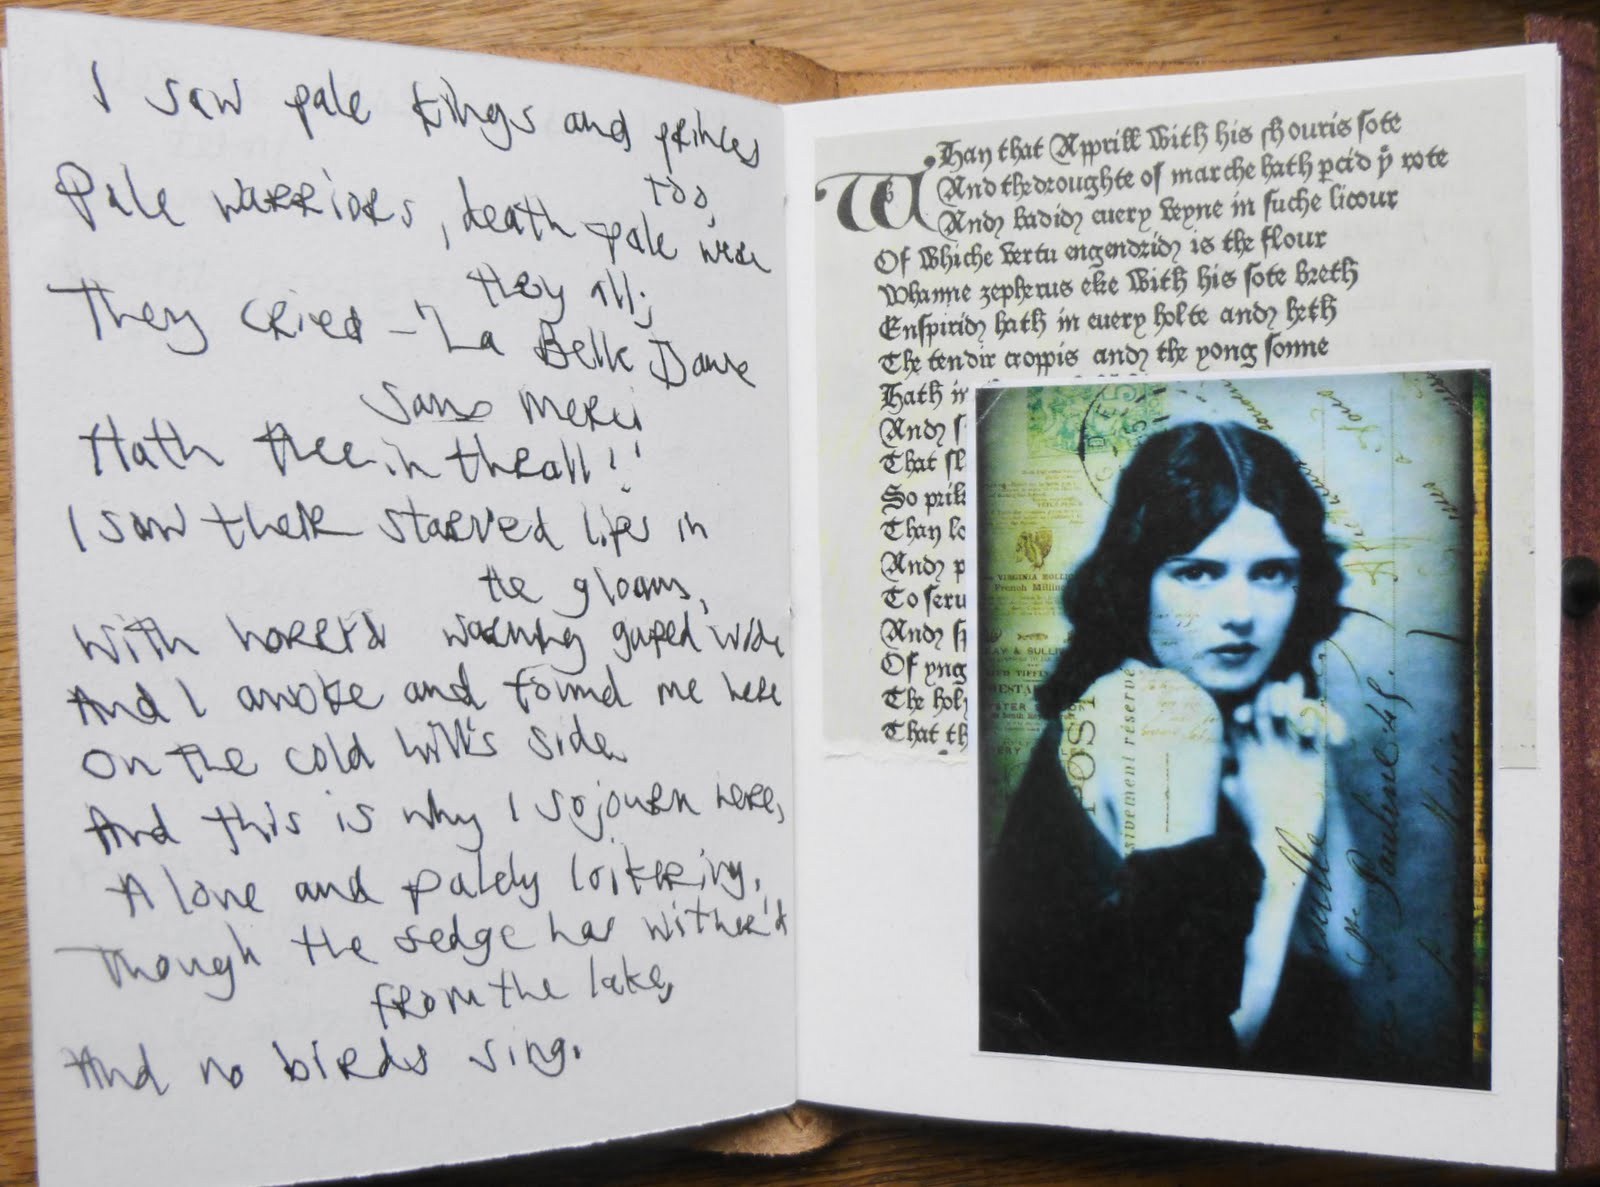 I saw pale kings and princes
too,
Pale warriors, death pale were
they all;
They cried – "La Belle Dame
Sans Merci
Hath thee in thrall!!
I saw their starved lips in
the gloam,
With horrid warning gaped wide
And I awoke and found me here
On the cold hill's side
And this is why I sojourn here,
Alone and palely loitering,
Though the sedge has wither'd
from the lake,
And no birds sing.
Whan that Apprill With his shouris sote
And the droughte of marche hath percid ye rote
And badid euery veyne in suche licour
Of Whiche vertu engendrid is the flour
Whanne zepherus eke With his sote breth
Enspirid hath in euery holte and heth
The tendir croppis and the yong sonne
Hath in
And s
That sl
So prik
Than lo
And p
To seru
And
Of yng
The holy
That th
VIRGINIA ROLLIC
French Millin
AY & SULLI
TIFFIN
ESTA
POST
sivement réservé
Pauline